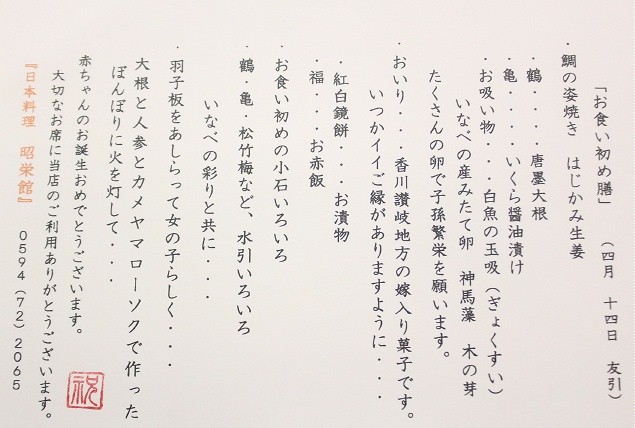 「お食い初め膳」 （四月 十四日 友引）
・鯛の姿焼き はじかみ生姜
・鶴・・・・・唐墨大根
・亀・・・・・いくら醤油漬け
・お吸い物・・・白魚の玉吸（ぎょくすい）
いなべの産みたて卵 神馬藻 木の芽
たくさんの卵で子孫繁栄を願います。
・おいり・・・香川讃岐地方の嫁入り菓子です。
いつかイイご縁がありますように・・・
・紅白鏡餅・・・お漬物
・福・・・お赤飯
・お食い初めの小石いろいろ
・鶴・亀・松竹梅など、水引いろいろ
いなべの彩りと共に・・・
・羽子板をあしらって女の子らしく・・・
大根と人参とカメヤマローソクで作った
ぼんぼりに火を灯して・・・
赤ちゃんのお誕生おめでとうございます。
大切なお席に当店のご利用ありがとうございます。
『日本料理 昭栄館』 0594（72）2065
祝